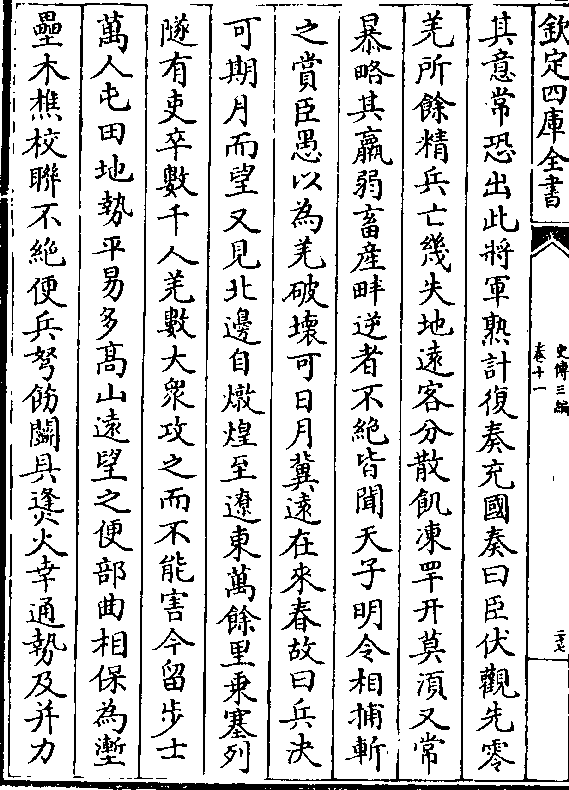 欽定四庫全書
史傳三編
卷十一
二十七
其意常恐出此將軍熟計復奏充國奏曰臣伏觀先零
羌所餘精兵亡幾失地遠客分散飢凍罕开莫湏又常
暴略其羸弱畜産畔逆者不絶皆聞天子明令相捕斬
之賞臣愚以為羌破壞可日月冀逺在來春故曰兵决
可期月而望又見北邊自燉煌至遼東萬餘里乗塞列
隧有吏卒數千人羌數大衆攻之而不能害今留步士
萬人屯田地勢平易多髙山逺望之便部曲相保為壍
壘木樵校聨不絶便兵弩飭鬭具㷭火幸通勢及并力